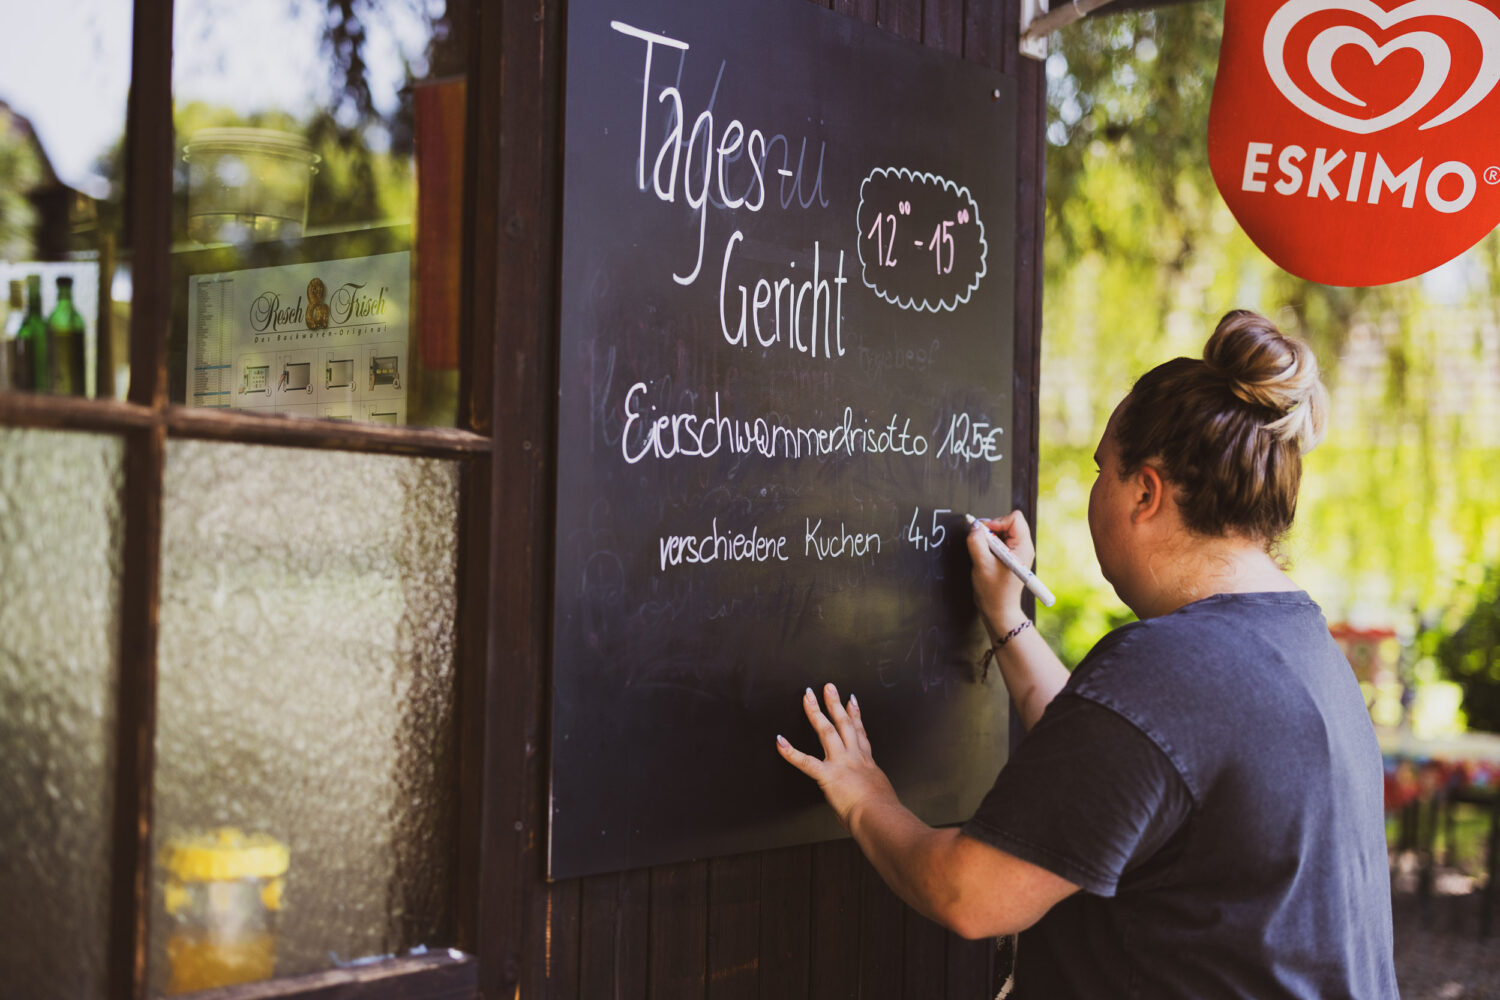 Tages-
Gericht
12⁰⁰-15⁰⁰
Eierschwammerlrisotto 12,5€
verschiedene Kuchen 4,5
ESKIMO®
Resch & Frisch®
Das Backwaren-Original